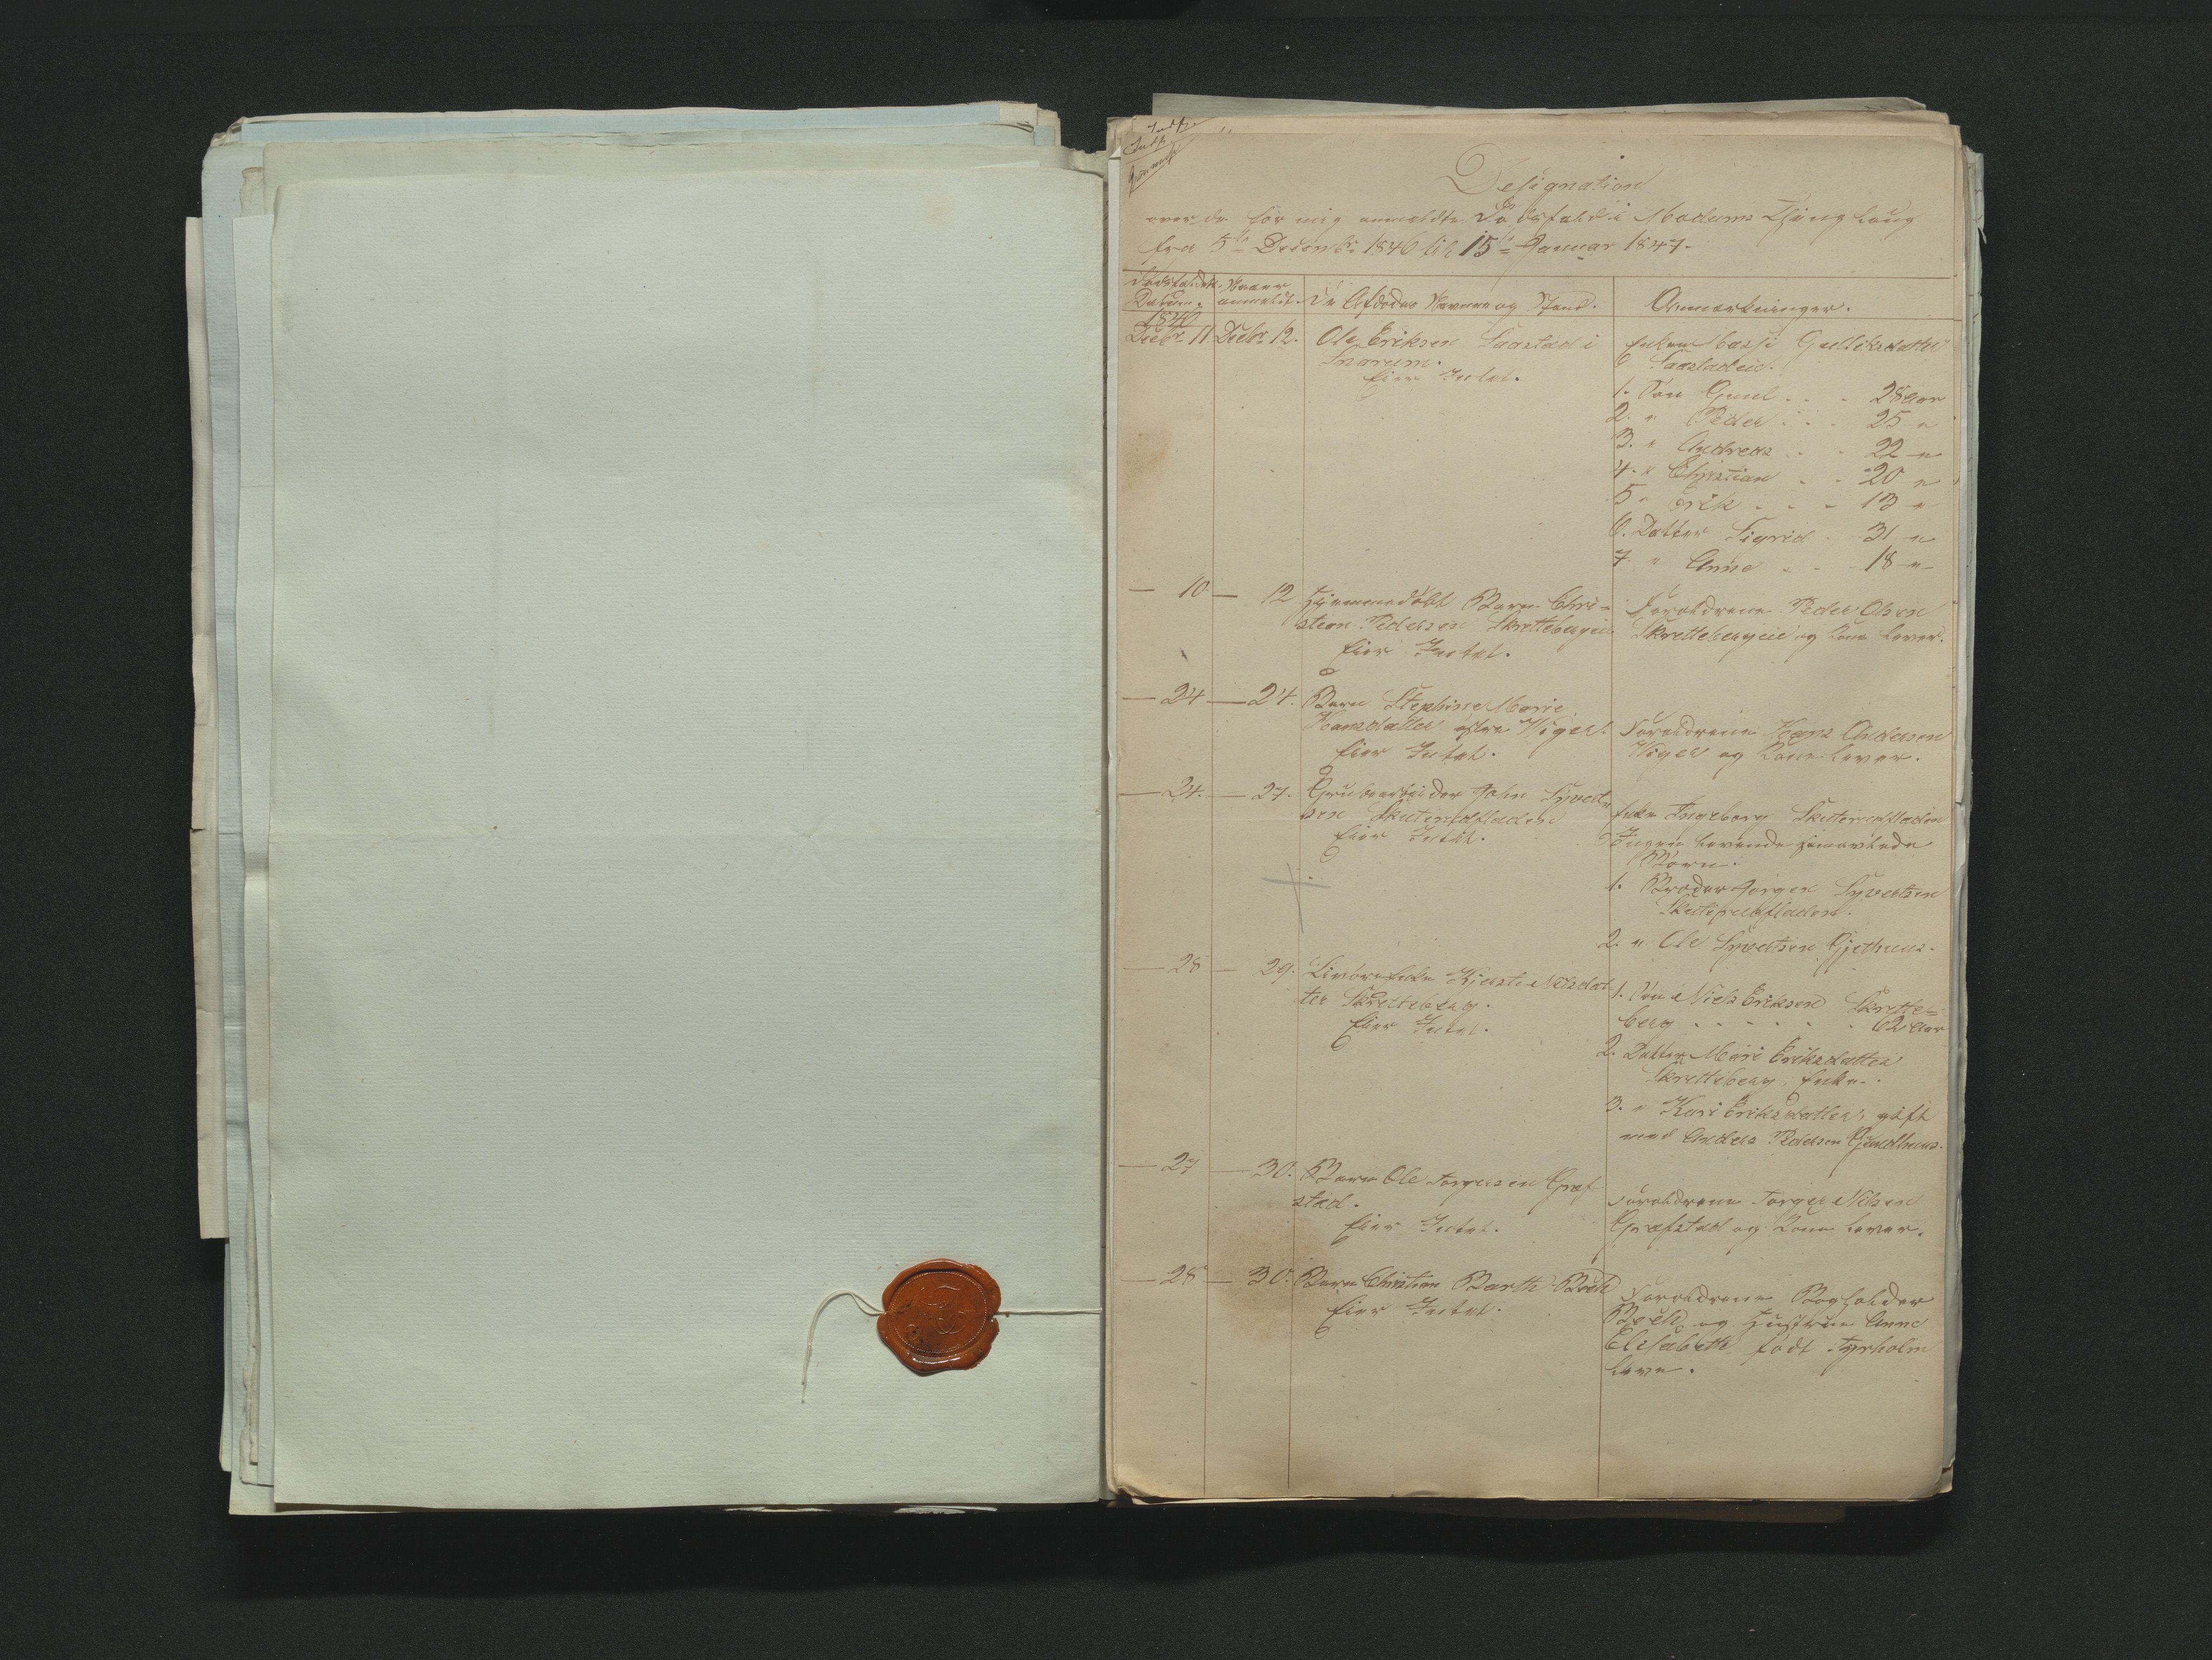 Designation
over de for mig anmeldte Dødsfald i Modums Thinglaug
fra 5te Decembr 1846 til 15de Januar 1847.
Dødsfaldets Datum.
Naar anmeldt.
De Afdødes Navne og Stand.
Anmærkninger.
1846
Decbr 11
Decbr 12.
Ole Eriksen Saastad i
Snarum.
Eier Intet.
Enken Gulliksdatter
Saastadeie.
1. Søn Gunl . . . 28 Aar
2. " Peder . . . 25 "
3. " Andreas . . 22 "
4. " Christian . . 20 "
5 " Erik . . . 13 "
6. Datter Sigrid . 31 "
7. " Anne . . 18 "
— 10
— 12
Hjemmedøbt Barn Chri-
stian Pedersen Skrettebergeie
Eier Intet.
Forældrene Peder Olsen
Skrettebergeie og Kone lever.
— 24
— 24.
Barn Stephine Marie
Hansdatter østre Wiger.
Eier Intet.
Forældrene Hans Andersen
Wiger og Kone lever.
— 24.
— 27.
Grubearbeider John Syvert-
sen Skuterudfladen
Eier Intet.
Enke Ingeborg Skuterudfladen
Ingen levende
Børn.
1. Broder Jørgen Syvertsen
Skuterudfladen.
2. " Ole Syvertsen Gjethuus.
— 28
— 29.
Enke Kjersti Nilsdat-
ter Skretteberg.
Eier Intet.
1. Søn Niels Eriksen Skrette-
berg . . . . . 62 Aar
2. Datter Mari Eriksdatter
Skretteberg, Enke.
3. " Kari Eriksdatter, gift
med Anders Pedersen
— 27
— 30.
Barn Ole Torgersen Græf-
stad.
Eier Intet.
Forældrene Torger Nilsen
Græfstad og Kone lever.
— 28
— 30.
Barn Christian Barth Bøch
Eier Intet.
Forældrene Bogholder
Bøch og Hustrue Anne
Elisabeth født Fyrholm
leve.